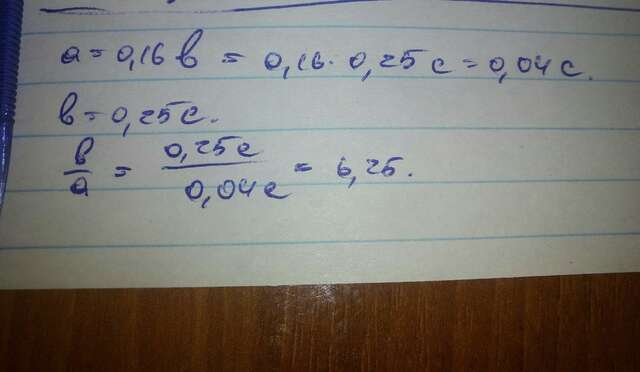 a = 0,16 в = 0,16 · 0,25 с = 0,04 с.
в = 0,25 с.
в/а = 0,25 с / 0,04 с = 6,25.